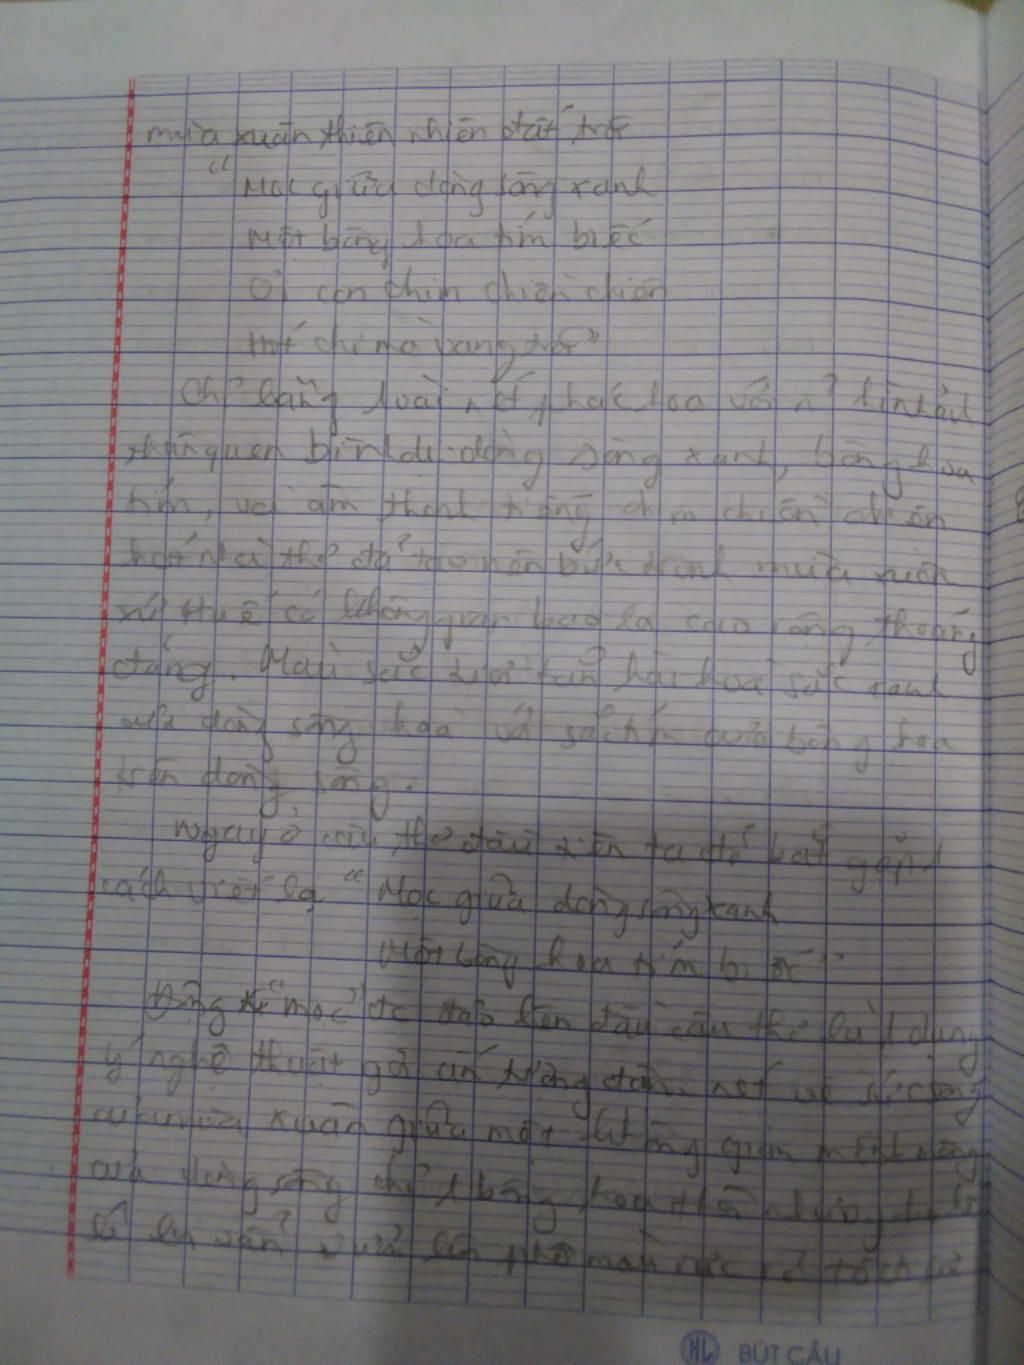 mùa xuân thiên nhiên đất trời
"Mọc giữa dòng sông xanh
Một bông hoa tím biếc
Ơi con chim chiền chiện
Hót chi mà vang trời"
Chỉ bằng vài nét phác họa với n~ hình ảnh
thân quen bình dị: dòng sông xanh, bông hoa
tím, và âm thanh tiếng chim chiền chiện
hót nhà thơ đã tạo nên bức tranh mùa xuân
xứ Huế có không gian bao la cao rộng thoáng
đãng. Màu sắc tươi tắn hài hoà sắc xanh
của dòng sông hoà với sắc tím của bông hoa
trên dòng sông.
Ngay ở câu thơ đầu tiên ta đã bắt gặp 1
cách viết lạ "Mọc giữa dòng sông xanh
Một bông hoa tím biếc"
Động từ "mọc" đc đảo lên đầu câu thơ là 1 dụng
ý nghệ thuật gợi ấn tượng đậm nét về sức sống
của mùa xuân giữa một không gian mênh mông
của dòng sông chỉ 1 bông hoa thôi